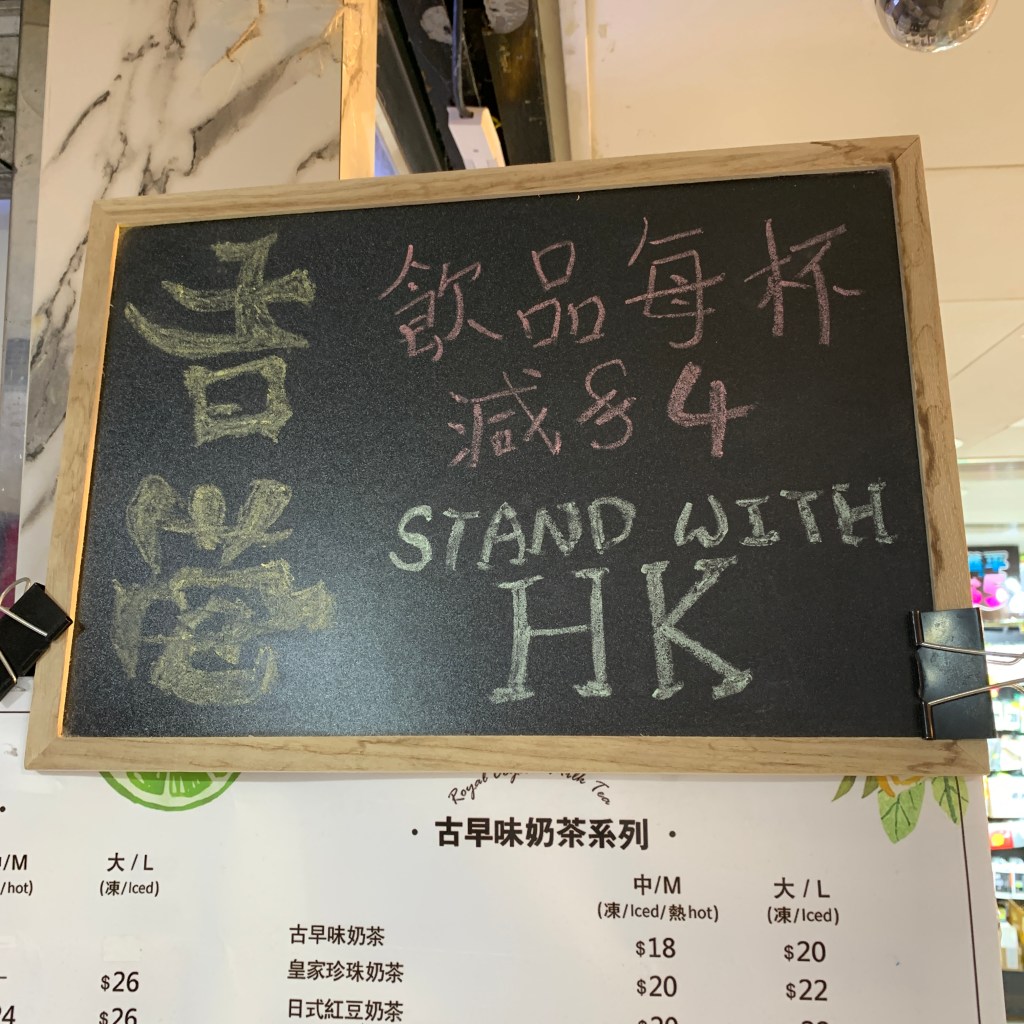 飲品每杯
減$4
STAND WITH
HK
Royal
Tea
· 古早味奶茶系列 ·
/M
大 / L
/hot)
(凍/Iced)
中/M
大 / L
(凍/Iced/熱hot)
(凍/Iced)
古早味奶茶
$18
$20
皇家珍珠奶茶
$20
$22
日式紅豆奶茶
$26
$26